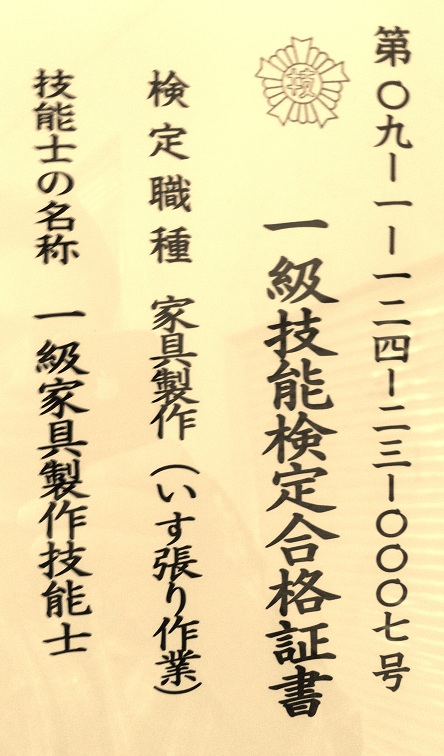 第〇九ー一ー一二四ー二三ー〇〇〇七号
技
一級技能検定合格証書
検定職種 家具製作（いす張り作業）
技能士の名称 一級家具製作技能士